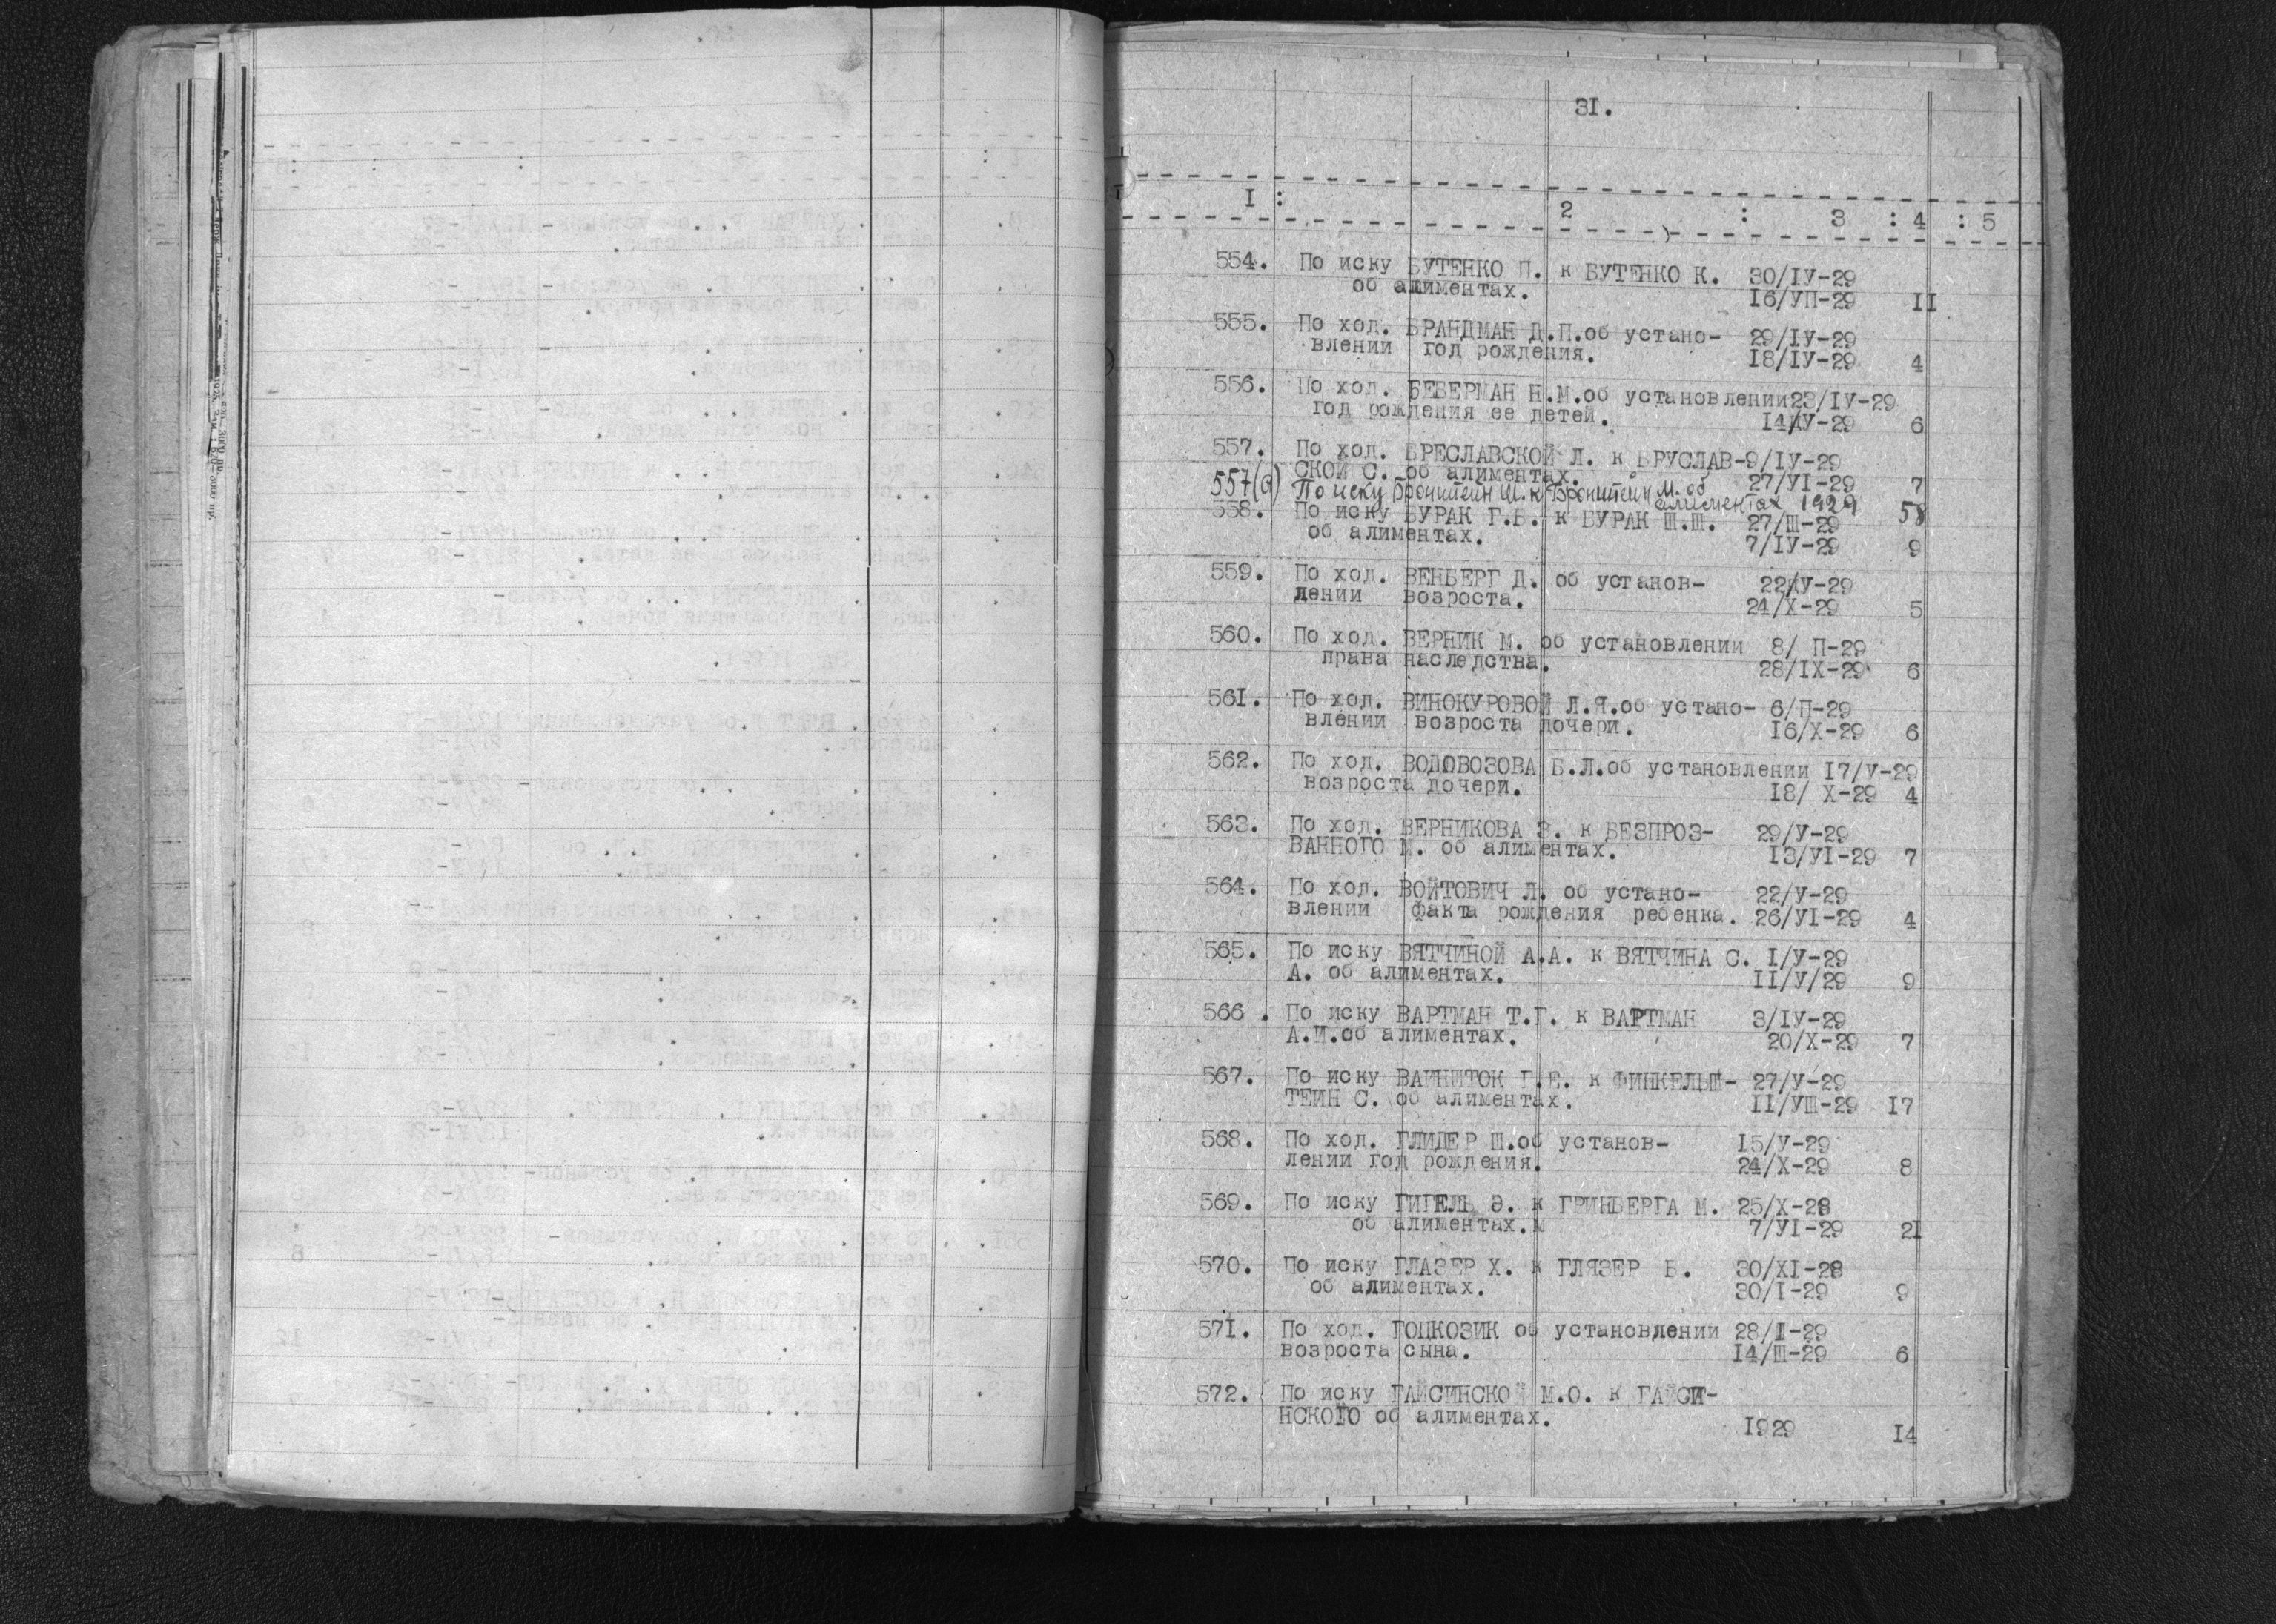 31.
I : 2 : 3 : 4 : 5
554. По иску БУТЕНКО П. к БУТЕНКО К. 30/IУ-29
об алиментах. 16/УП-29 II
555. По ход. БРАНДМАН Д.П.об устано- 29/IУ-29
влении год рождения. 18/IУ-29 4
556. По ход. БЕВЕРМАН Н.М.об установлении23/IУ-29
год рождения ее детей. 14/У-29 6
557. По ход. БРЕСЛАВСКОЙ Л. к БРУСЛАВ-9/IУ-29
СКОЙ С. об алиментах. 27/УI-29 7
557(а) По иску Бронштейн Ш. к Бронштейн М. об
алиментах 1929 58
558. По иску БУРАК Г.Б. к БУРАК Ш.Ш. 27/Ш-29
об алиментах. 7/IУ-29 9
559. По ход. ВЕНБЕРГ Д. об установ- 22/У-29
лении возроста. 24/X-29 5
560. По ход. ВЕРНИК М. об установлении 8/ П-29
права наследства. 28/IX-29 6
561. По ход. ВИНОКУРОВОЙ Л.Я.об устано- 6/П-29
влении возроста дочери. I6/X-29 6
562. По ход. ВОДОВОЗОВА Б.Л.об установлении I7/У-29
возроста дочери. I8/ X-29 4
563. По ход. ВЕРНИКОВА З. к БЕЗПРОЗ- 29/У-29
ВАННОГО М. об алиментах. I3/УI-29 7
564. По ход. ВОЙТОВИЧ Л. об устано- 22/У-29
влении факта рождения ребенка. 26/УI-29 4
565. По иску ВЯТЧИНОЙ А.А. к ВЯТЧИНА С. I/У-29
А. об алиментах. II/У/29 9
566 . По иску ВАРТМАН Т.Г. к ВАРТМАН 3/IУ-29
А.И.об алиментах. 20/X-29 7
567. По иску ВАИНШТОК Г.Е. к ФИНКЕЛЬШ- 27/У-29
ТЕИН С. об алиментах. II/УШ-29 I7
568. По ход. ГЛИДЕР Ш.об установ- I5/У-29
лении год рождения. 24/X-29 8
569. По иску ГИГЕЛЬ Э. к ГРИНБЕРГА М. 25/X-28
об алиментах. 7/УI-29 2I
570. По иску ГЛАЗЕР Х. к ГЛЯЗЕР Б. 30/XI-28
об алиментах. 30/I-29 9
571. По ход. ГОЦКОЗИК об установлении 28/I-29
возроста сына. I4/Ш-29 6
572. По иску ГАЙСИНСКОЙ М.О. к ГАЙСИ-
НСКОГО об алиментах. I929 I4